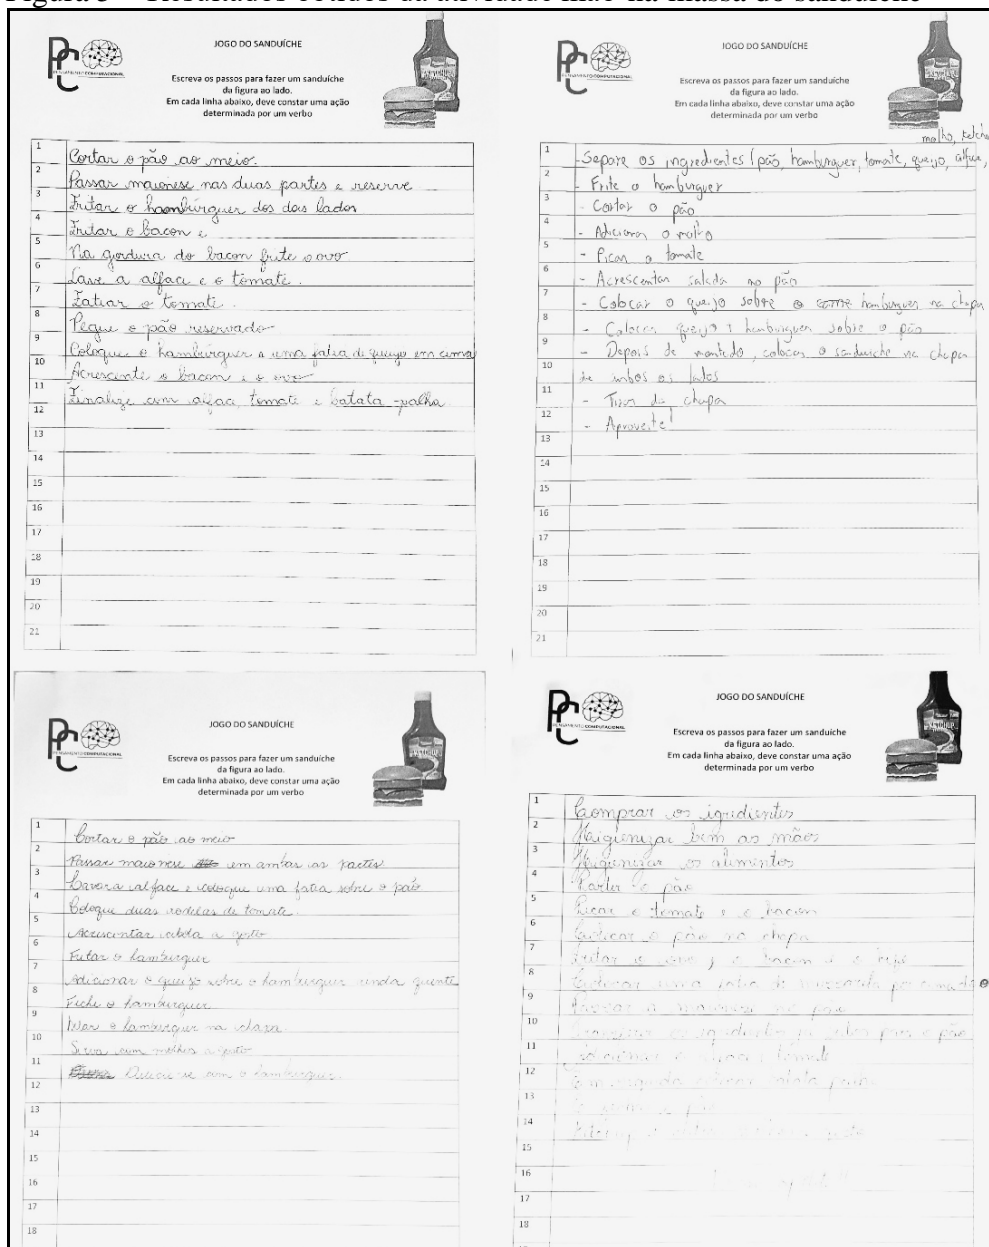 Figura 3 – Resultados obtidos da atividade mão na massa do sanduíche
PC
PENSAMENTO COMPUTACIONAL
JOGO DO SANDUÍCHE
Escreva os passos para fazer um sanduíche
da figura ao lado.
Em cada linha abaixo, deve constar uma ação
determinada por um verbo
1 Cortar o pão ao meio.
2 Passar maionese nas duas partes e reserve
3 Fritar o hambúrguer dos dois lados
4 Fritar o bacon e
5 Na gordura do bacon frite o ovo
6 Lave a alface e o tomate.
7 Fatiar o tomate.
8 Pegue o pão reservado
9 Coloque o hambúrguer e uma fatia de queijo em cima
10 Acrescente o bacon e o ovo
11 Finalize com alface, tomate e batata-palha
12
13
14
15
16
17
18
19
20
21
PC
PENSAMENTO COMPUTACIONAL
JOGO DO SANDUÍCHE
Escreva os passos para fazer um sanduíche
da figura ao lado.
Em cada linha abaixo, deve constar uma ação
determinada por um verbo
molho, ketchup
1 - Separe os ingredientes (pão, hamburguer, tomate, queijo, alface,
2 - Frite o hamburguer
3 - Cortar o pão
4 - Adicionar o molho
5 - Picar o tomate
6 - Acrescentar salada no pão
7 - Colocar o queijo sobre o carne hamburguer na chapa
8 - Colocar queijo e hamburguer sobre o pão
9 - Depois de montado, colocar o sanduiche na chapa
10 de ambos os lados
11 - Tirar da chapa
12 - Aproveite!
13
14
15
16
17
18
19
20
21
PC
PENSAMENTO COMPUTACIONAL
JOGO DO SANDUÍCHE
Escreva os passos para fazer um sanduíche
da figura ao lado.
Em cada linha abaixo, deve constar uma ação
determinada por um verbo
1 Cortar o pão ao meio
2 Passar maionese em ambas as partes
3 Lavar a alface e coloque uma fatia sobre o pão
4 Coloque duas rodelas de tomate.
5 Acrescentar cebola a gosto
6 Fritar o hamburguer
7 Adicionar o queijo sobre o hamburguer ainda quente
8 Feche o hamburguer
9 hamburguer na chapa
10 Sirva com molhos a gosto
11 Delicie-se com o hamburguer.
12
13
14
15
16
17
18
PC
PENSAMENTO COMPUTACIONAL
JOGO DO SANDUÍCHE
Escreva os passos para fazer um sanduíche
da figura ao lado.
Em cada linha abaixo, deve constar uma ação
determinada por um verbo
1 Comprar os igredientes
2 Higienizar bem as mãos
3 Higienizar os alimentos
4 Partir o pão
5 Picar o tomate e o bacon
6 Colocar o pão na chapa
7 Fritar o ovo, o bacon e o bife
8 Colocar uma fatia de mussarela por cima do
9 Passar a maionese no pão
10 os igredientes pão
11 Adicionar o alface e tomate
12 Em seguida colocar batata palha
13 o pão
14
15
16
17
18